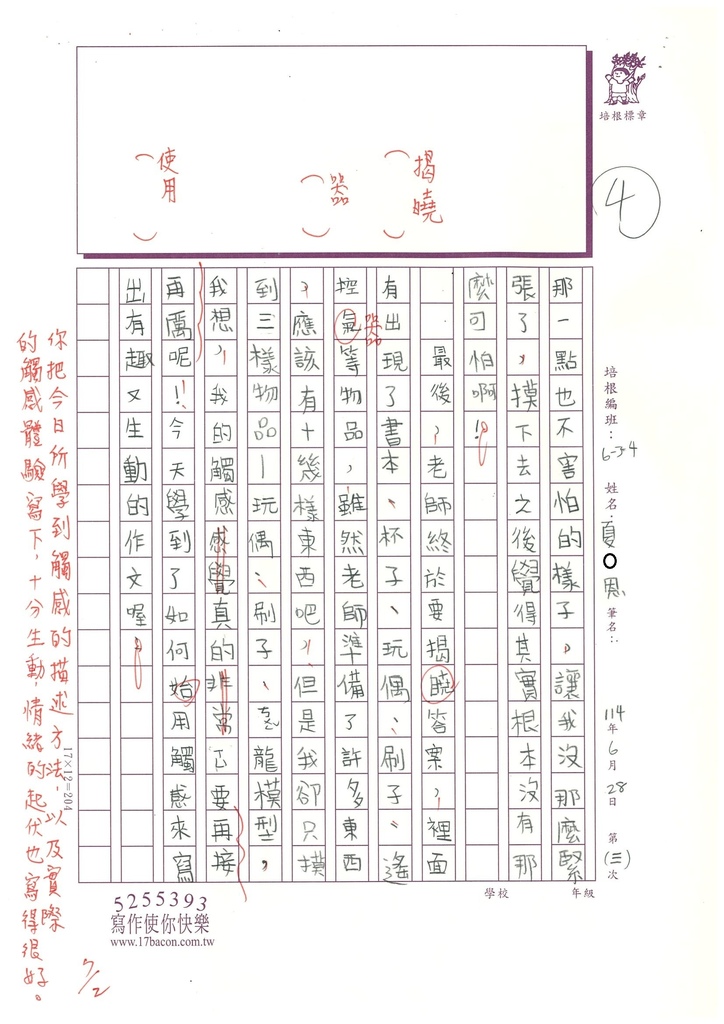 培根標章
4
揭曉
（　）
器
（　）
使用
（　）
培根編班：6-34 姓名：夏○恩 筆名：
114年6月28日 第(三)次
學校 年級
那一點也不害怕的樣子，讓我沒那麼緊
張了，摸下去之後覺得其實根本沒有那
麼可怕啊！
最後，老師終於要揭曉答案，裡面
有出現了書本、杯子、玩偶、刷子、遙
控氣等物品，雖然老師準備了許多東西
器
，應該有十幾樣東西吧，但是我卻只摸
到三樣物品—玩偶、刷子、ㄎㄨㄥˇ龍模型，
我想，我的觸感感覺真的非常ㄒㄩ要再接
再厲呢！今天學到了如何始用觸感來寫
出有趣又生動的作文喔！
17×12=204
你把今日所學到觸感的描述方法，以及實際
的觸感體驗寫下，十分生動，情緒的起伏也寫得很好。
7/2
5255393
寫作使你快樂
www.17bacon.com.tw